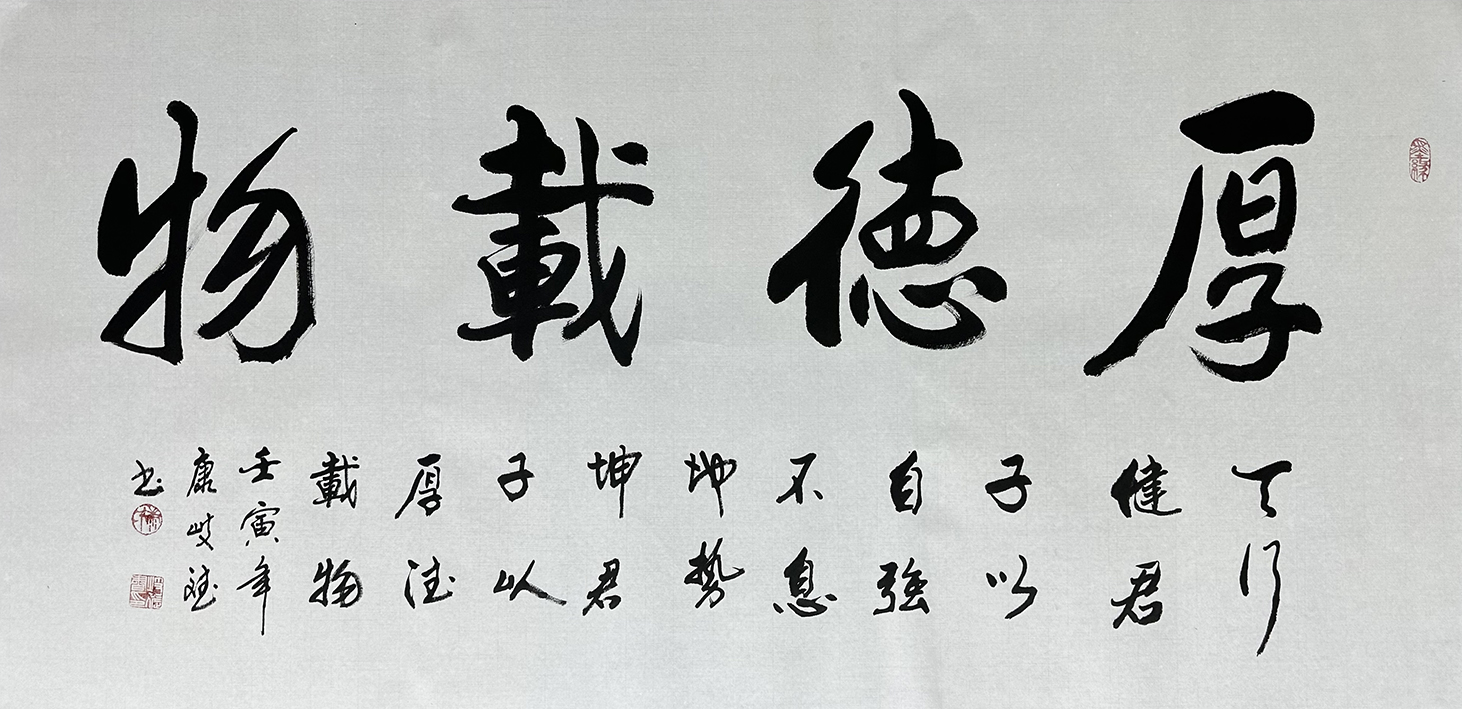 厚德載物
天行
健君
子以
自強
不息
地势
坤君
子以
厚德
載物
壬寅年
康岐
书